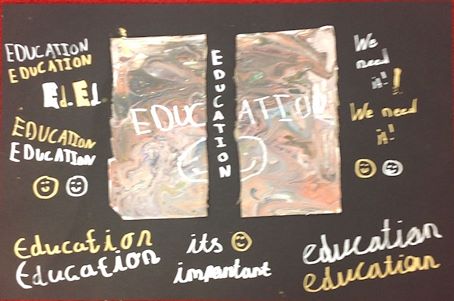 EDUCATION
EDUCATION
Ed. Ed.
EDUCATION
EDUCATION
EDUCATION
EDUCATION
We
need
it!
!
We need
it!
Education
Education
its
important
education
education